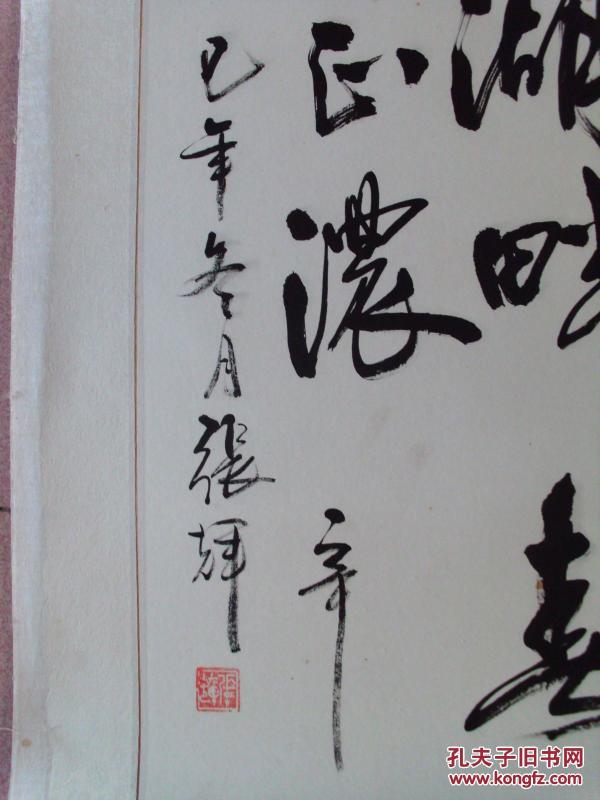 湖畔春
正濃 辛
巳年冬月張輝
張輝
孔夫子旧书网
www.kongfz.com